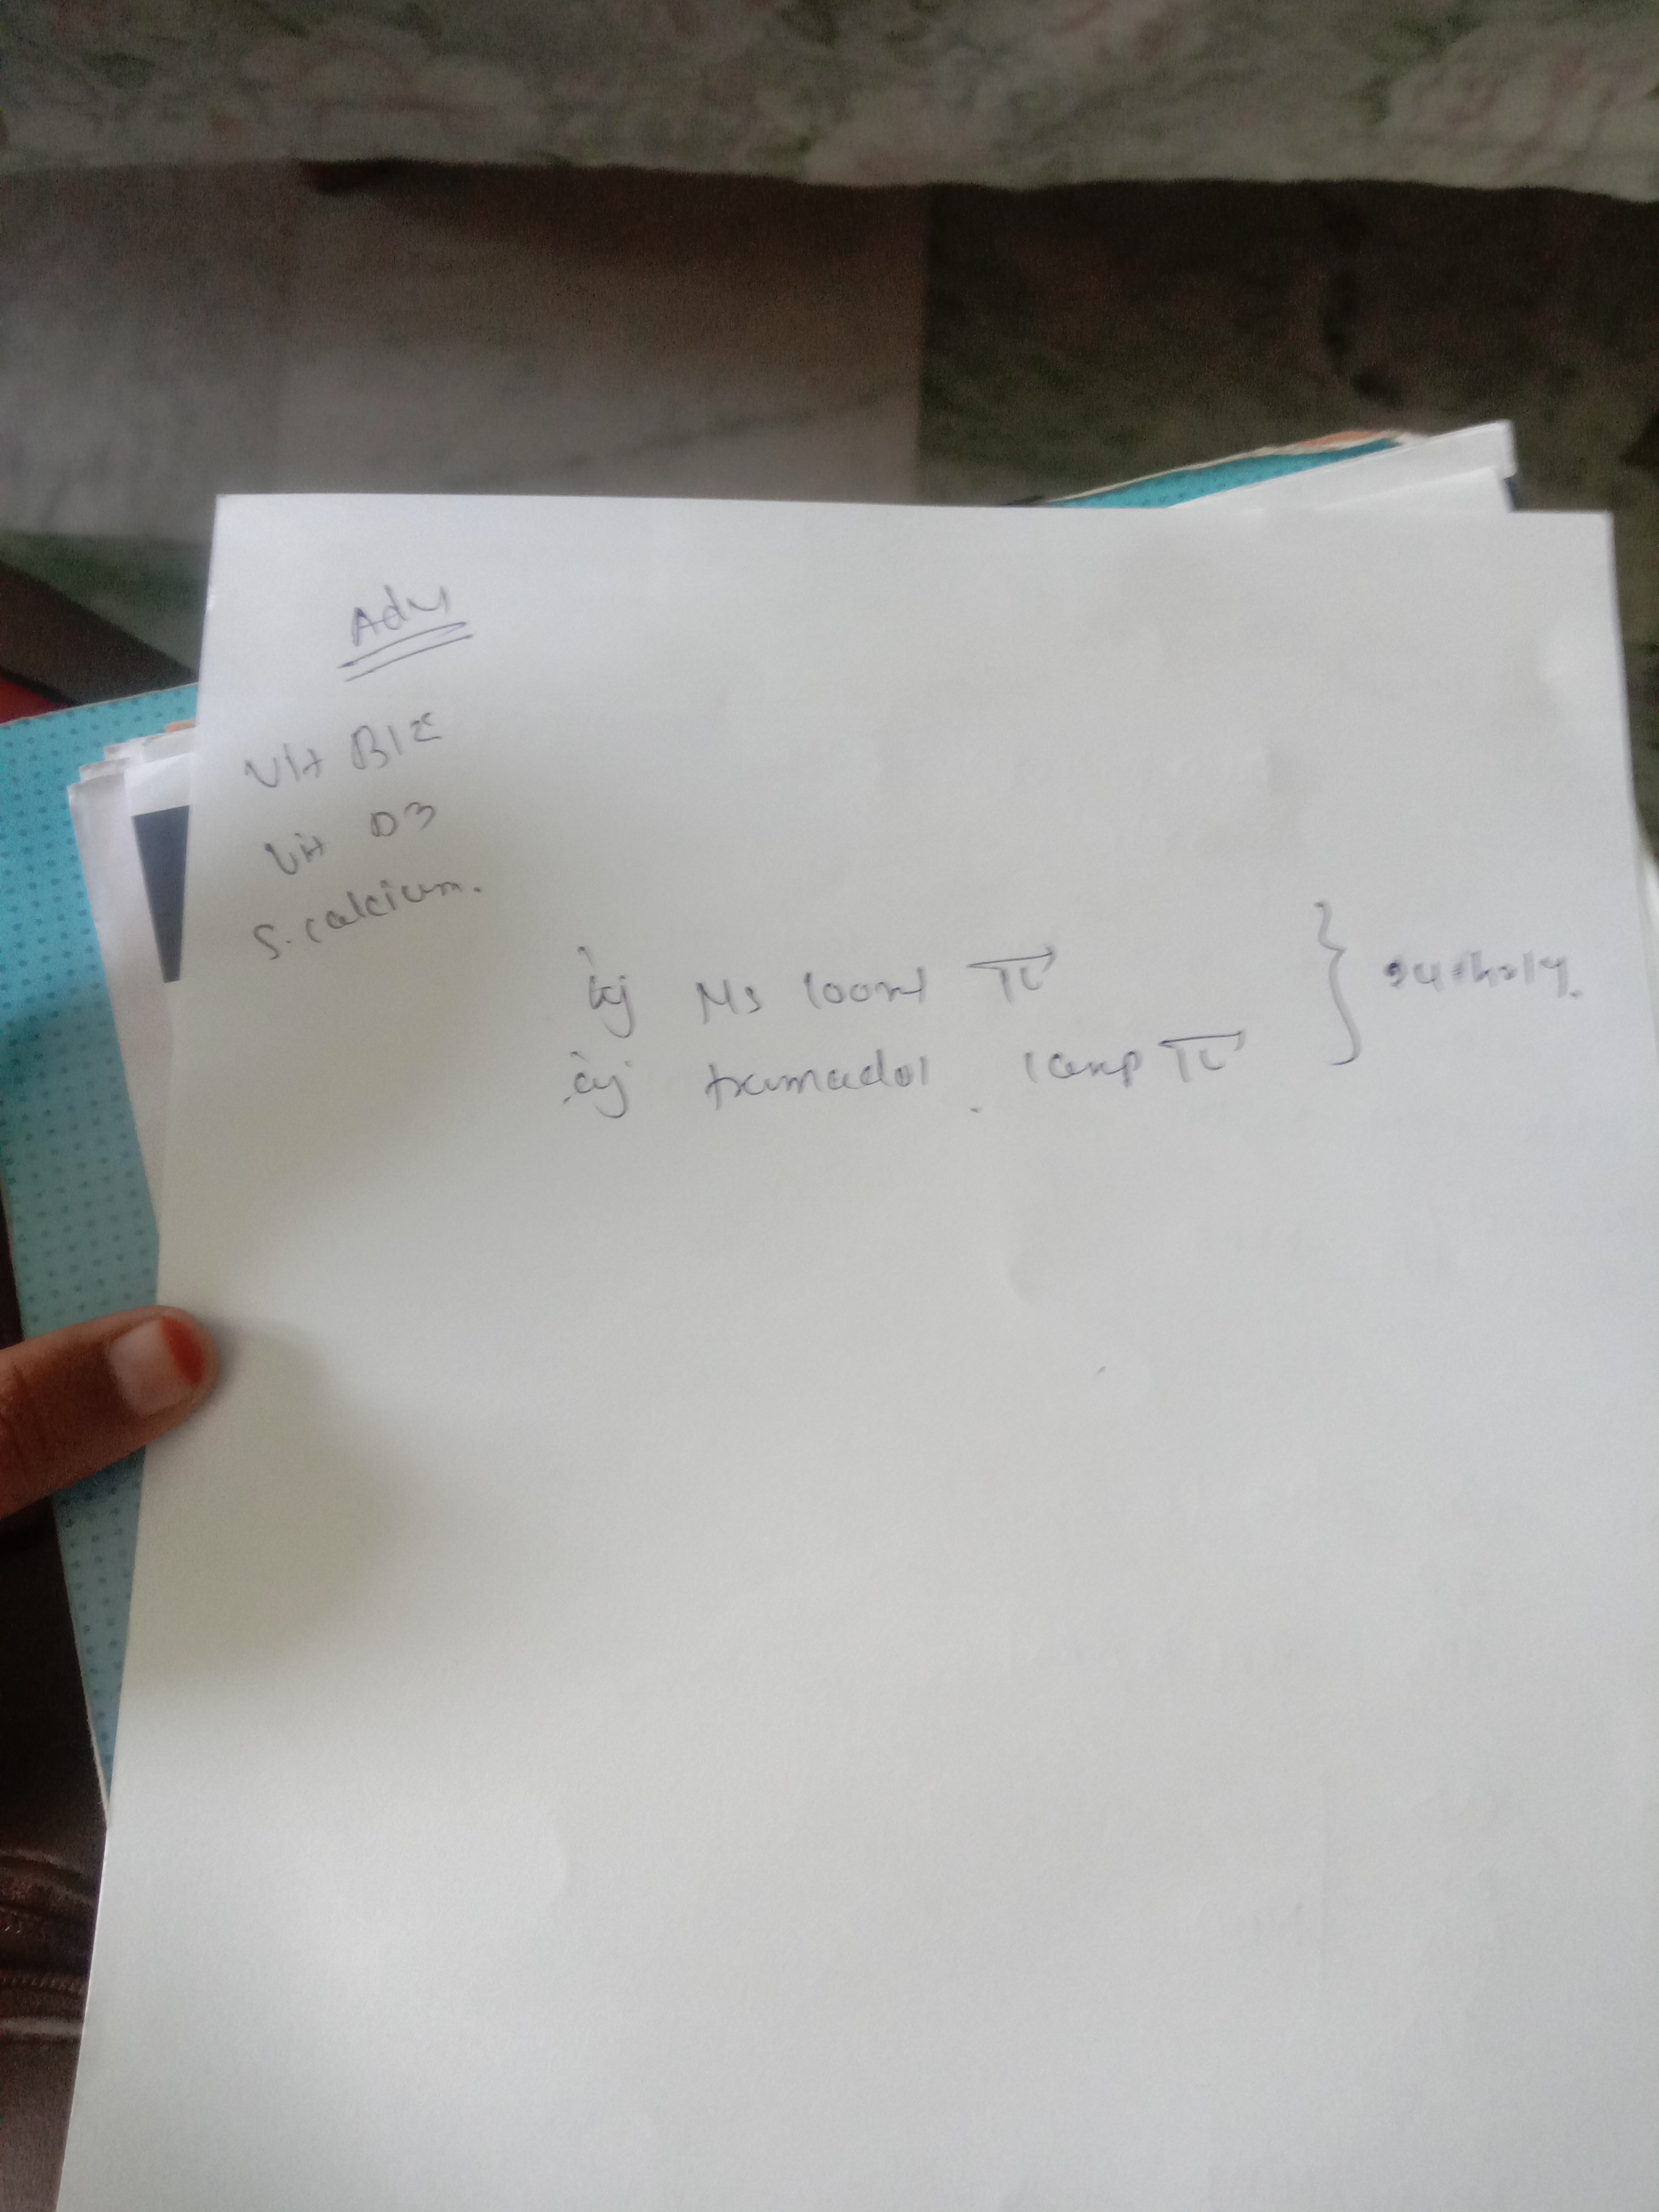 Adv
Vit B12
Vit D3
S. calcium.
inj NS 100ml IV
inj tramadol 1amp IV }